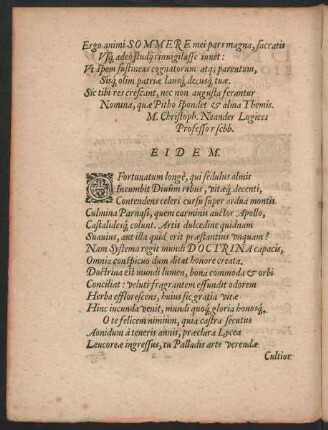 Ergo animi SOMMERE mei pars magna, sacratis
Vsq; adeo studijs invigilasse iuvet:
Vt spem sustineas cognatorum atq; parentum,
Sisq; olim patriæ lausq; decusq; tuæ.
Sic tibi res crescant, nec non augusta ferantur
Nomina, quæ Pitho spondet & alma Themis.
M. Christoph. Neander Logices
Professor scbb.
EIDEM.
O Fortunatum longè, qui sedulus almis
Incumbit Divûm rebus, vitæq; decenti,
Contendens celeri cursu super ardua montis
Culmina Parnasi, quem carminis auctor Apollo,
Castalidesq; colunt. Artis dulcedine quidnam
Suavius, aut illa quid erit præstantius unquam?
Nam Systema regit mundi DOCTRINA capacis,
Omnia conspicuo dum ditat honore creata.
Doctrina est mundi lumen, bona commoda & orbi
Conciliat: veluti fragrantem effundit odorem
Herba efflorescens, huius sic gratia vitæ
Hinc iucunda venit, mundi quoq; gloria honosq;.
O te felicem nimiùm, quia castra secutus
Aonidum à teneris annis, præclara Lycea
Leucoreæ ingressus, tu Palladis arte verendæ
Cultior